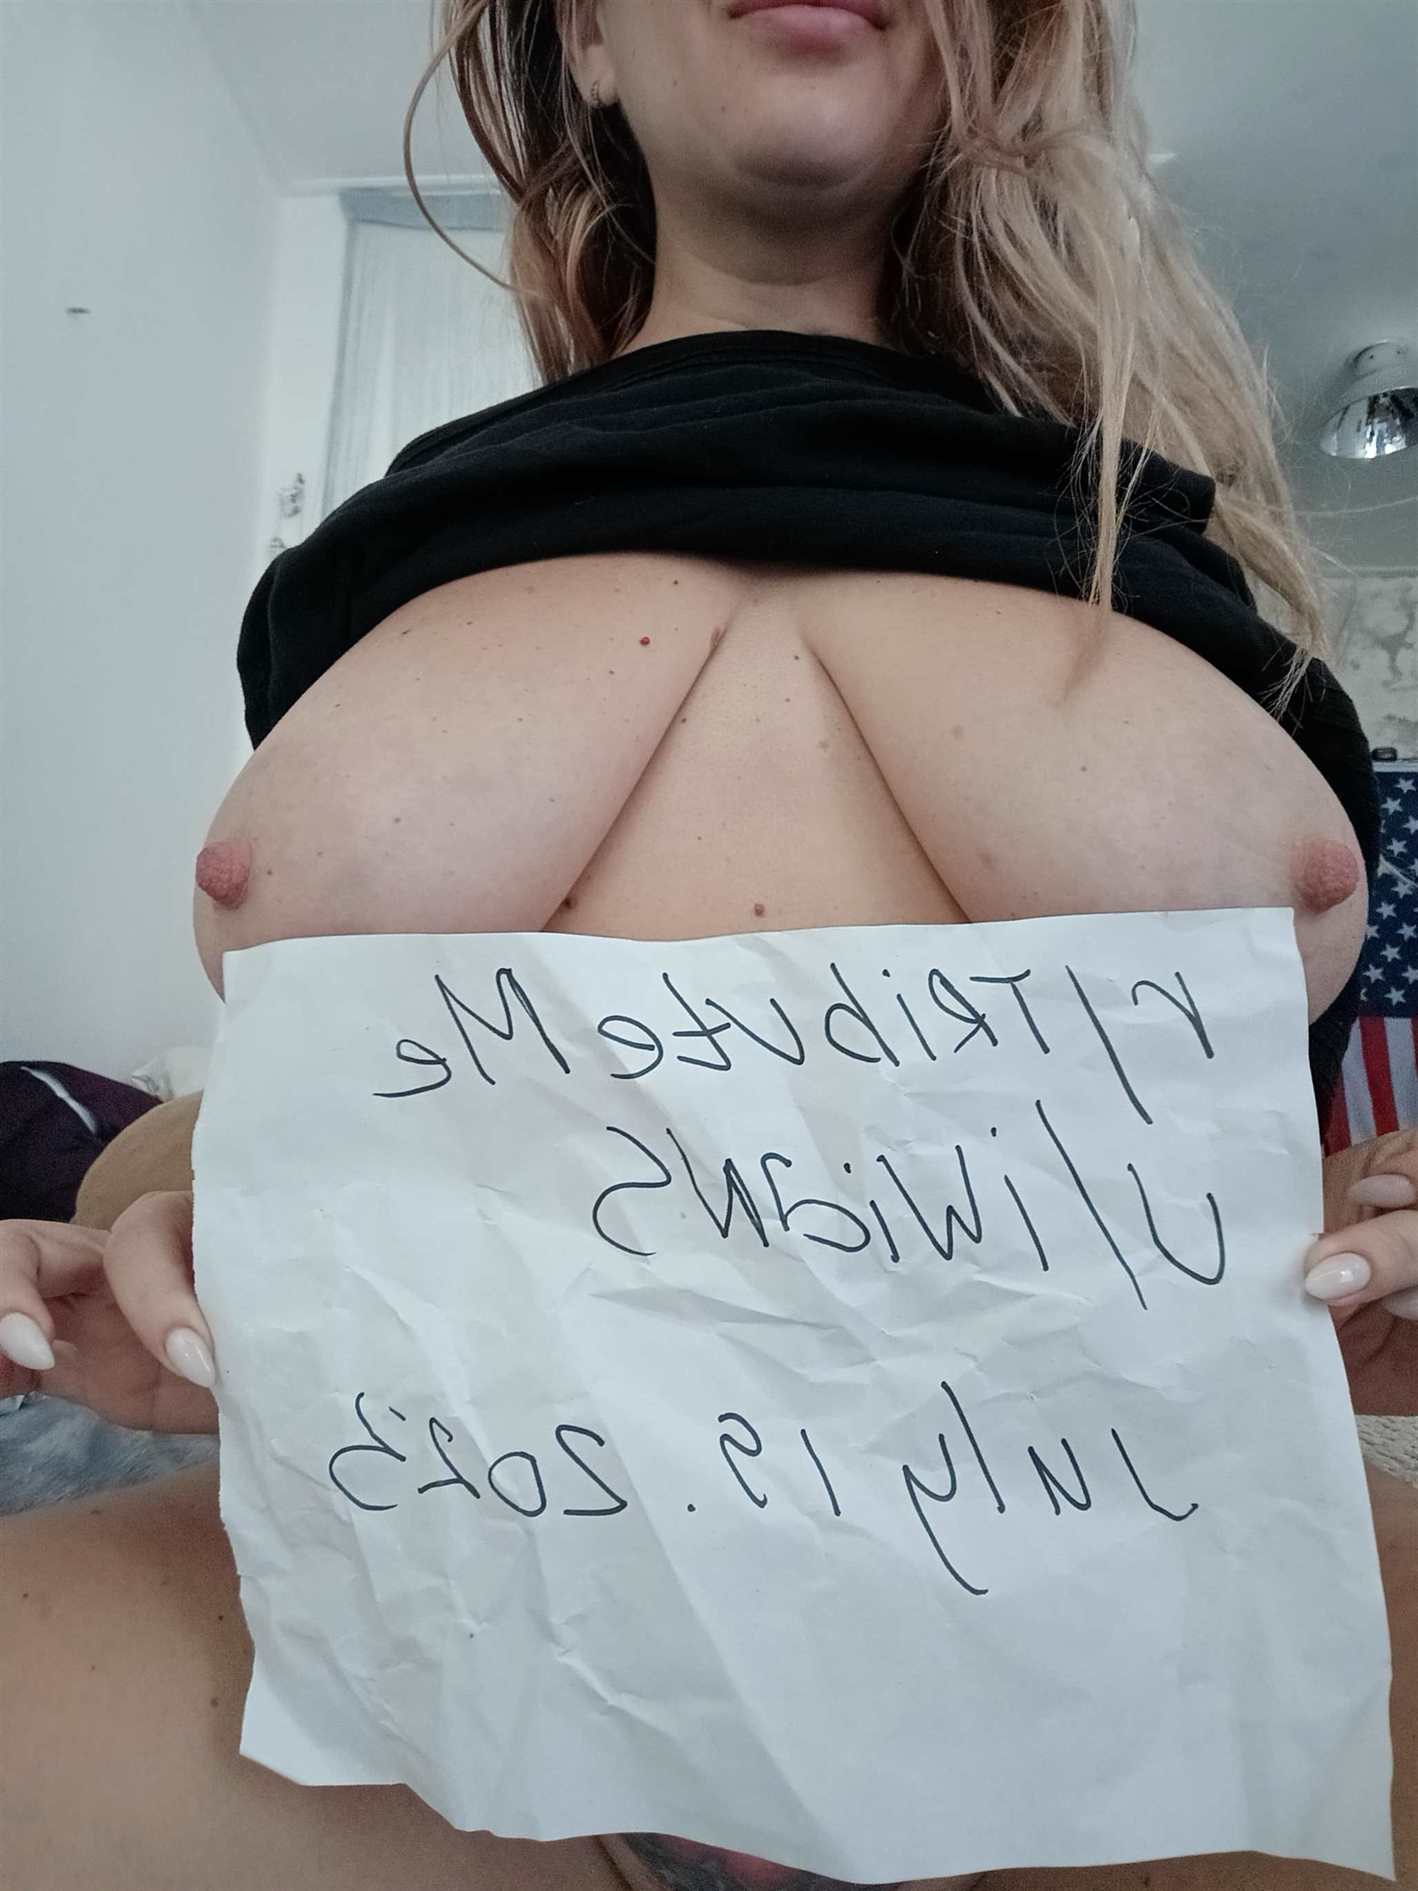 r/TRibuteMe
u/iWiaNS
July 15. 2023